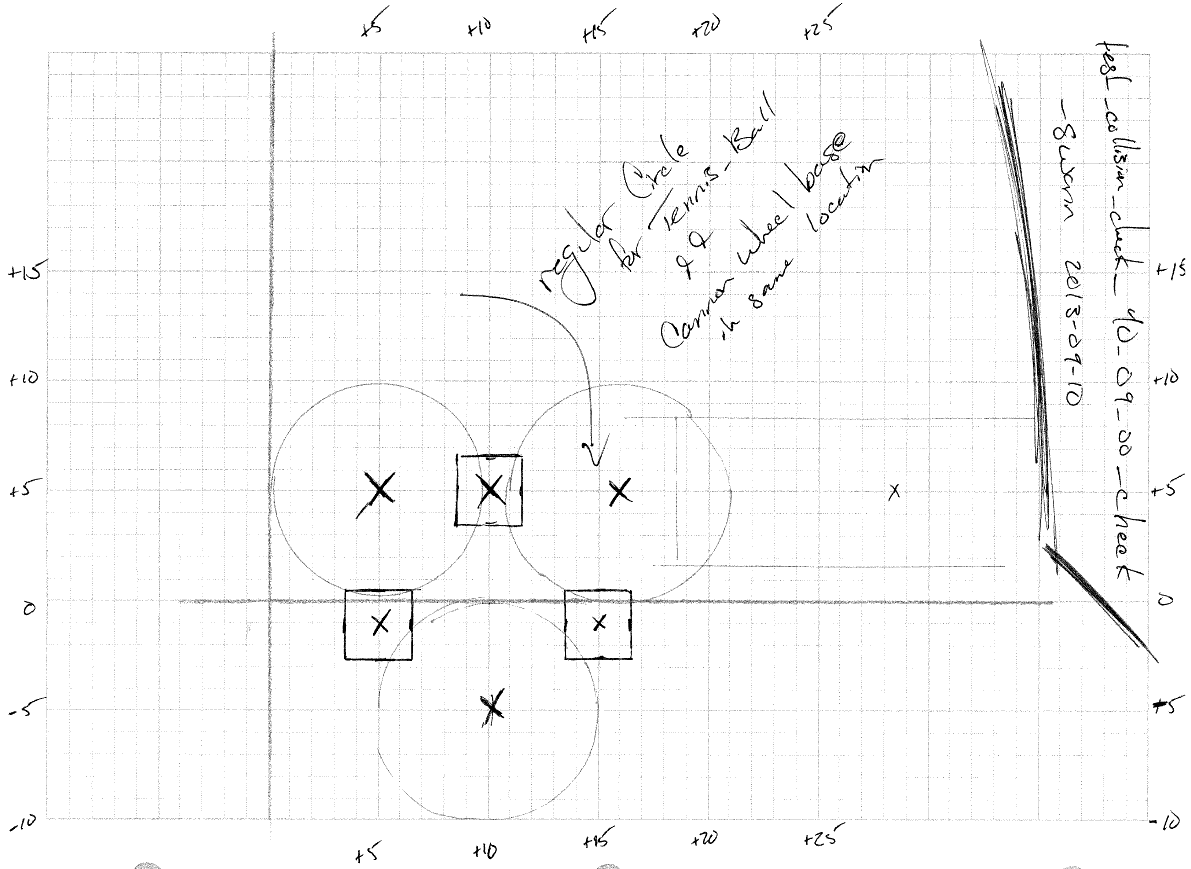 +5 +10 +15 +20 +25
test_collision_check_40_09_00_check
-Swann 2013-09-10
regular Circle
for Tennis_Ball
&&
Cannon wheel base
in same location
+15 +15
+10 +10
+5 +5
0 0
-5
-10 -10
+5 +10 +15 +20 +25